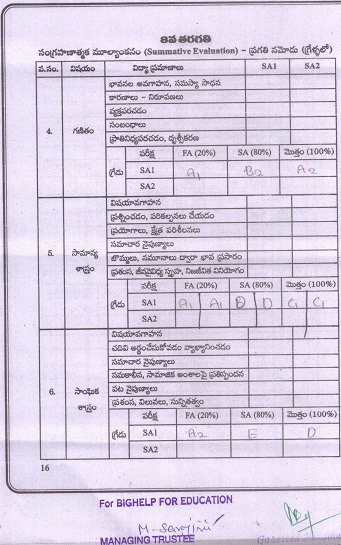 8వ తరగతి
సంగ్రహణాత్మక మూల్యాంకనం (Summative Evaluation) - ప్రగతి నమోదు (గ్రేళ్ళలో)
వ.సం. విషయం విద్యా ప్రమాణాలు SA1 SA2
భావనల అవగాహన, సమస్యా సాధన
కారణాలు - నిరూపణలు
వ్యక్తపరచడం
సంబంధాలు
ప్రాతినిధ్యపరచడం, దృశ్యీకరణ
4. గణితం
గ్రేడు పరీక్ష FA (20%) SA (80%) మొత్తం (100%)
SA1 A1 B2 A2
SA2
విషయావగాహన
ప్రశ్నించడం, పరికల్పనలు చేయడం
ప్రయోగాలు, క్షేత్ర పరిశీలనలు
సమాచార నైపుణ్యాలు
బొమ్మలు, నమూనాలు ద్వారా భావ ప్రసారం
ప్రశంస, జీవవైవిధ్య స్పృహ, నిజజీవిత వినియోగం
5. సామాన్య శాస్త్రం
గ్రేడు పరీక్ష FA (20%) SA (80%) మొత్తం (100%)
SA1 A1 A1 D D C1 C1
SA2
విషయావగాహన
చదివి అర్థంచేసుకోవడం వ్యాఖ్యానించడం
సమాచార నైపుణ్యాలు
సమకాలీన, సామాజిక అంశాలపై ప్రతిస్పందన
పట నైపుణ్యాలు
ప్రశంస, విలువలు, సున్నితత్వం
6. సాంఘిక శాస్త్రం
గ్రేడు పరీక్ష FA (20%) SA (80%) మొత్తం (100%)
SA1 A2 E D
SA2
16
For BIGHELP FOR EDUCATION
M. Sarojini
MANAGING TRUSTEE